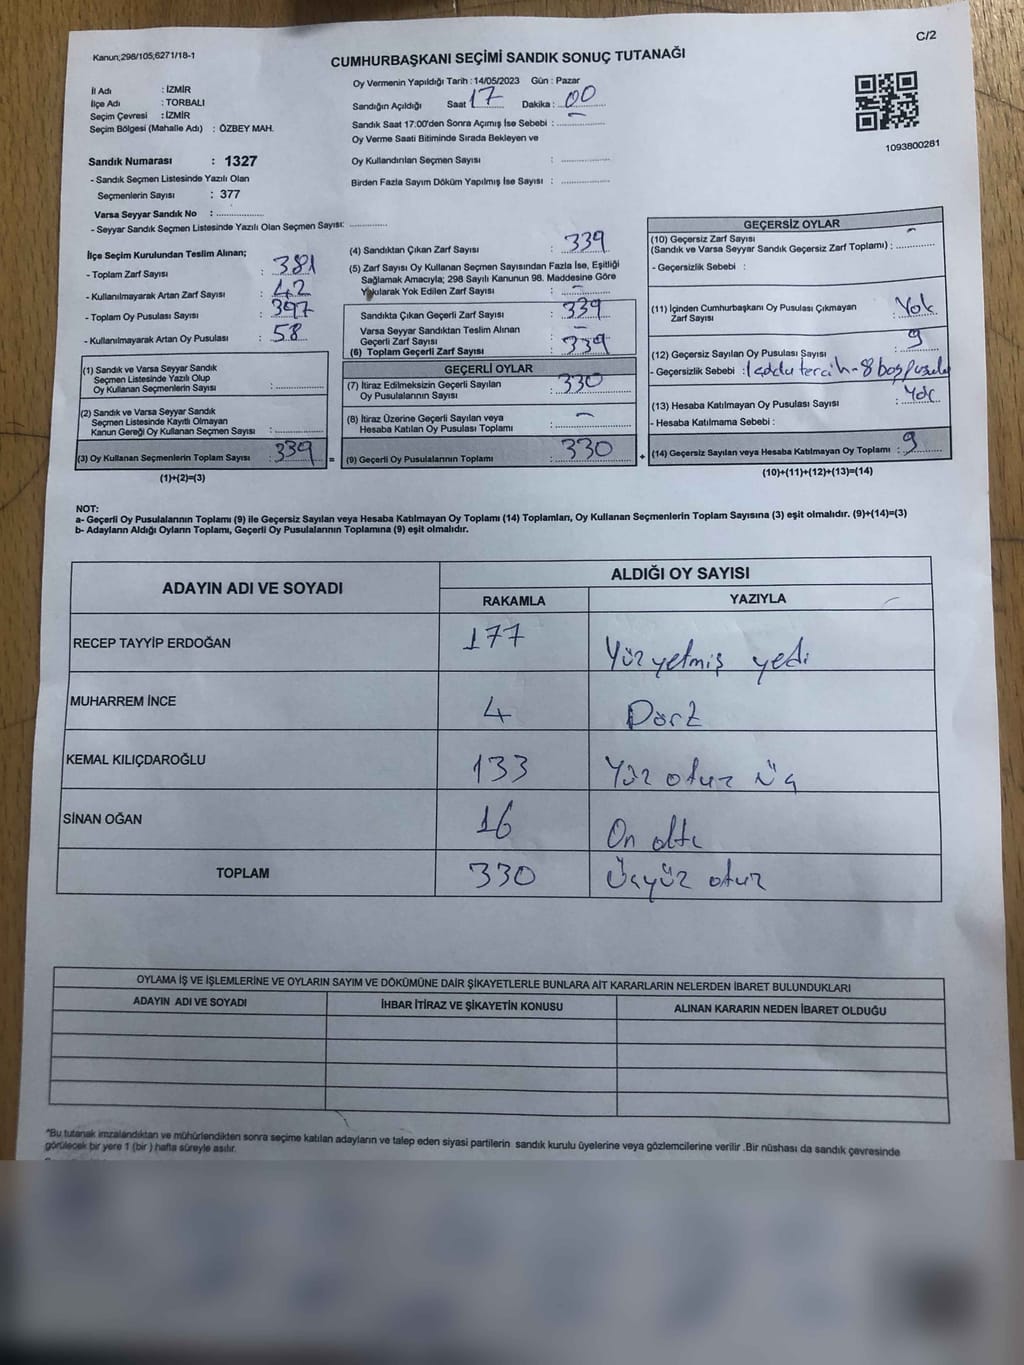 C/2
Kanun;298/105,6271/18-1
CUMHURBAŞKANI SEÇİMİ SANDIK SONUÇ TUTANAĞI
İl Adı : İZMİR
İlçe Adı : TORBALI
Seçim Çevresi : İZMİR
Seçim Bölgesi (Mahalle Adı) : ÖZBEY MAH.
Sandık Numarası : 1327
- Sandık Seçmen Listesinde Yazılı Olan
Seçmenlerin Sayısı : 377
Varsa Seyyar Sandık No : ..................
- Seyyar Sandık Seçmen Listesinde Yazılı Olan Seçmen Sayısı: ..............
Oy Vermenin Yapıldığı Tarih : 14/05/2023 Gün : Pazar
Sandığın Açıldığı Saat 17 Dakika : 00
Sandık Saat 17:00'den Sonra Açımış İse Sebebi : ..............
Oy Verme Saati Bitiminde Sırada Bekleyen ve
Oy Kullandırılan Seçmen Sayısı : ..............
Birden Fazla Sayım Döküm Yapılmış İse Sayısı : ..............
1093800281
İlçe Seçim Kurulundan Teslim Alınan;
- Toplam Zarf Sayısı : 381
- Kullanılmayarak Artan Zarf Sayısı : 42
- Toplam Oy Pusulası Sayısı : 397
- Kullanılmayarak Artan Oy Pusulası : 58
(1) Sandık ve Varsa Seyyar Sandık
Seçmen Listesinde Yazılı Olup
Oy Kullanan Seçmenlerin Sayısı : ..............
(2) Sandık ve Varsa Seyyar Sandık
Seçmen Listesinde Kayıtlı Olmayan
Kanun Gereği Oy Kullanan Seçmen Sayısı : ..............
(3) Oy Kullanan Seçmenlerin Toplam Sayısı : 339 =
(1)+(2)=(3)
(4) Sandıktan Çıkan Zarf Sayısı : 339
(5) Zarf Sayısı Oy Kullanan Seçmen Sayısından Fazla İse, Eşitliği
Sağlamak Amacıyla; 298 Sayılı Kanunun 98. Maddesine Göre
Yakılarak Yok Edilen Zarf Sayısı : -
Sandıkta Çıkan Geçerli Zarf Sayısı : 339
Varsa Seyyar Sandıktan Teslim Alınan
Geçerli Zarf Sayısı : -
(6) Toplam Geçerli Zarf Sayısı : 339
GEÇERLİ OYLAR
(7) İtiraz Edilmeksizin Geçerli Sayılan
Oy Pusulalarının Sayısı : 330
(8) İtiraz Üzerine Geçerli Sayılan veya
Hesaba Katılan Oy Pusulası Toplamı : -
(9) Geçerli Oy Pusulalarının Toplamı : 330 +
GEÇERSİZ OYLAR
(10) Geçersiz Zarf Sayısı
(Sandık ve Varsa Seyyar Sandık Geçersiz Zarf Toplamı) : -
- Geçersizlik Sebebi :
(11) İçinden Cumhurbaşkanı Oy Pusulası Çıkmayan
Zarf Sayısı : Yok
(12) Geçersiz Sayılan Oy Pusulası Sayısı : 9
- Geçersizlik Sebebi : tercih - 8 boş pusula
(13) Hesaba Katılmayan Oy Pusulası Sayısı : Yok
- Hesaba Katılmama Sebebi :
(14) Geçersiz Sayılan veya Hesaba Katılmayan Oy Toplamı : 9
(10)+(11)+(12)+(13)=(14)
NOT:
a- Geçerli Oy Pusulalarının Toplamı (9) ile Geçersiz Sayılan veya Hesaba Katılmayan Oy Toplamı (14) Toplamları, Oy Kullanan Seçmenlerin Toplam Sayısına (3) eşit olmalıdır. (9)+(14)=(3)
b- Adayların Aldığı Oyların Toplamı, Geçerli Oy Pusulalarının Toplamına (9) eşit olmalıdır.
ADAYIN ADI VE SOYADI ALDIĞI OY SAYISI
RAKAMLA YAZIYLA
RECEP TAYYİP ERDOĞAN 177 Yüz yetmiş yedi
MUHARREM İNCE 4 Dört
KEMAL KILIÇDAROĞLU 133 Yüz otuz üç
SİNAN OĞAN 16 On altı
TOPLAM 330 Üçyüz otuz
OYLAMA İŞ VE İŞLEMLERİNE VE OYLARIN SAYIM VE DÖKÜMÜNE DAİR ŞİKAYETLERLE BUNLARA AİT KARARLARIN NELERDEN İBARET BULUNDUKLARI
ADAYIN ADI VE SOYADI İHBAR İTİRAZ VE ŞİKAYETİN KONUSU ALINAN KARARIN NEDEN İBARET OLDUĞU
*Bu tutanak imzalandıktan ve mühürlendikten sonra seçime katılan adayların ve talep eden siyasi partilerin sandık kurulu üyelerine veya gözlemcilerine verilir .Bir nüshası da sandık çevresinde
görülecek bir yere 1 (bir ) hafta süreyle asılır.